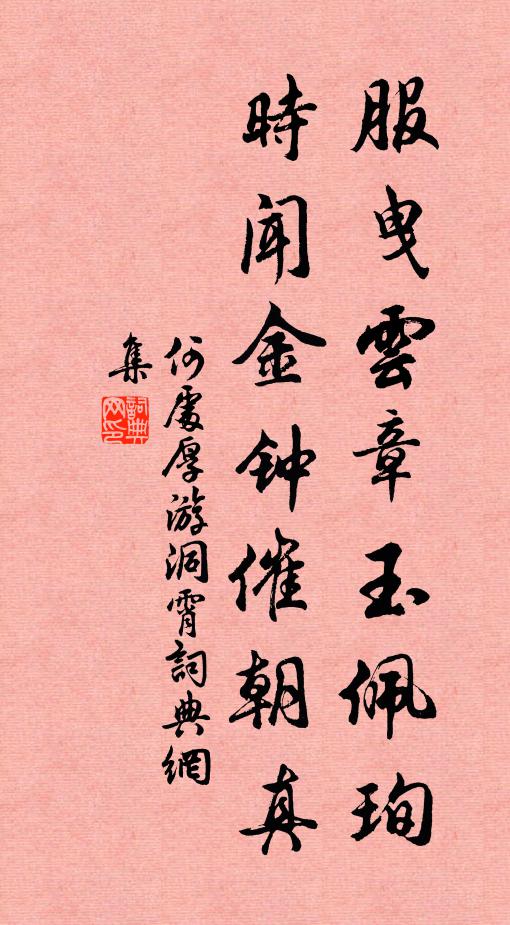 服曳雲章玉佩珣
時闻金钟催朝真
何處厚游洞霄詞典網
集
詞典網印